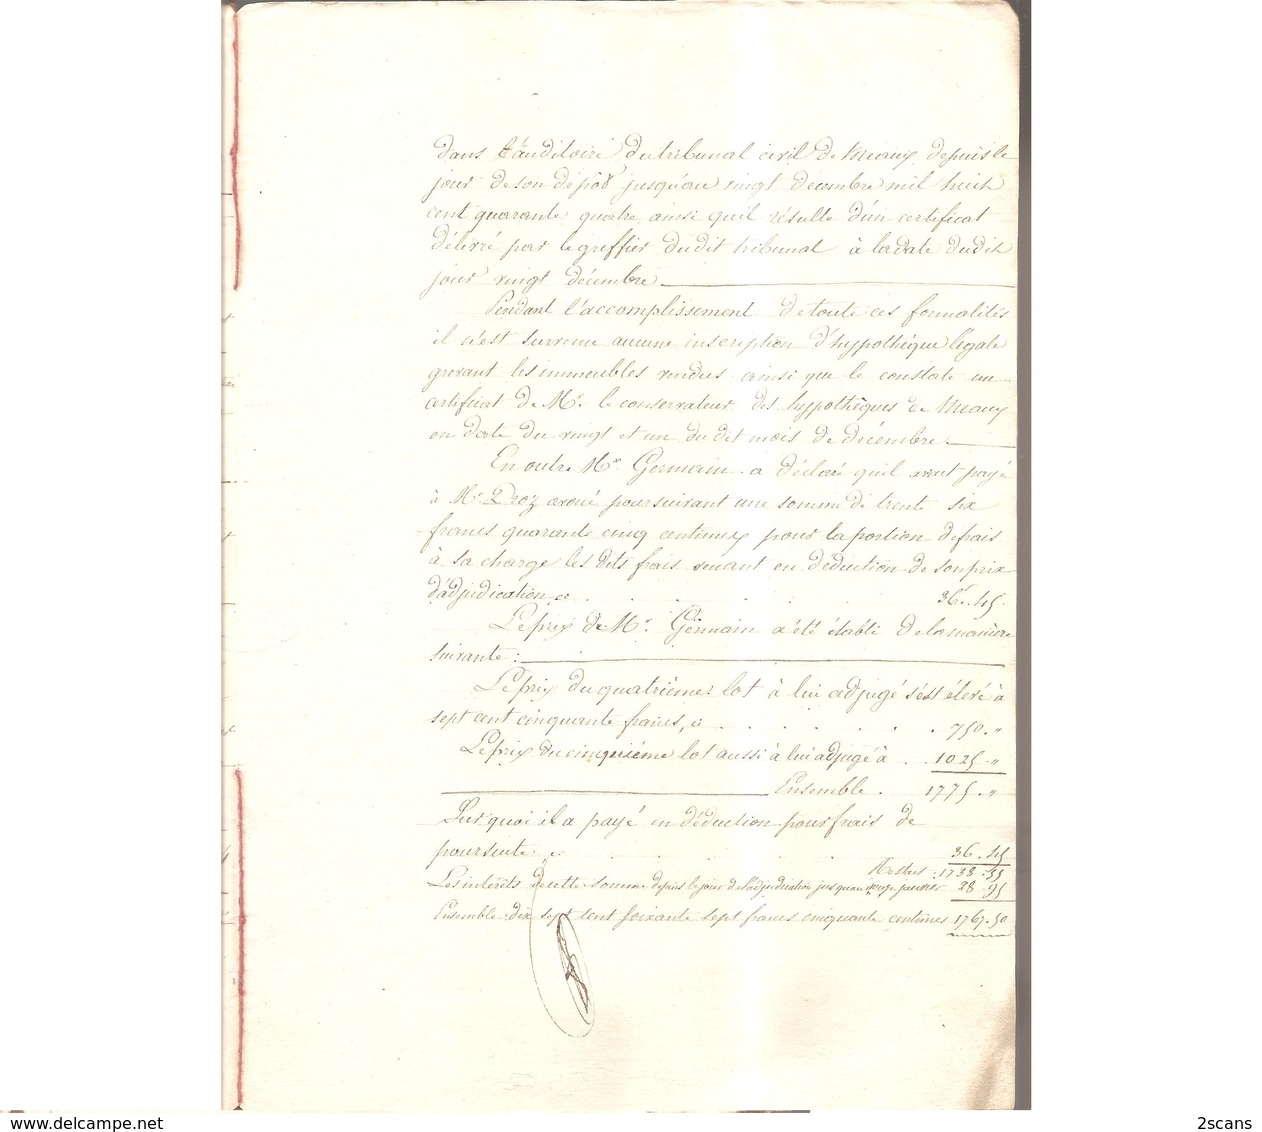 dans l'auditoire du tribunal civil de Meaux depuis le
jour de son dépôt jusqu'au vingt décembre mil huit
cent quarante quatre, ainsi qu'il résulte d'un certificat
délivré par le greffier dudit tribunal à la date dudit
jour vingt décembre
Pendant l'accomplissement de toute ces formalités
il n'est survenu aucune inscription d'hypothèque légale
grevant les immeubles vendus ainsi que le constate un
certificat de Mr. le conservateur des hypothèques de Meaux
en date du vingt et un du dit mois de décembre.
En outre Mr. Germain a déclaré qu'il avait payé
à Me Droz avoué poursuivant une somme de trente six
francs quarante cinq centimes pour la portion de frais
à sa charge les dits frais venant en déduction de son prix
d'adjudication ci . . . . 36f. 45
Le prix de Mr. Germain a été établi de la manière
suivante :
Le prix du quatrième lot à lui adjugé s'est élevé à
sept cent cinquante francs, ci . . . . . . . 750. "
Le prix du cinquième lot aussi à lui adjugé à . . 1025. "
Ensemble . 1775. "
Sur quoi il a payé en déduction pour frais de
poursuite ci . . . . 36. 45
Restes : 1738. 55
Les intérêts de cette somme depuis le jour de l'adjudication jusqu'au janvier 28. 95
Ensemble dix sept cent soixante sept francs cinquante centimes 1767. 50
2scans